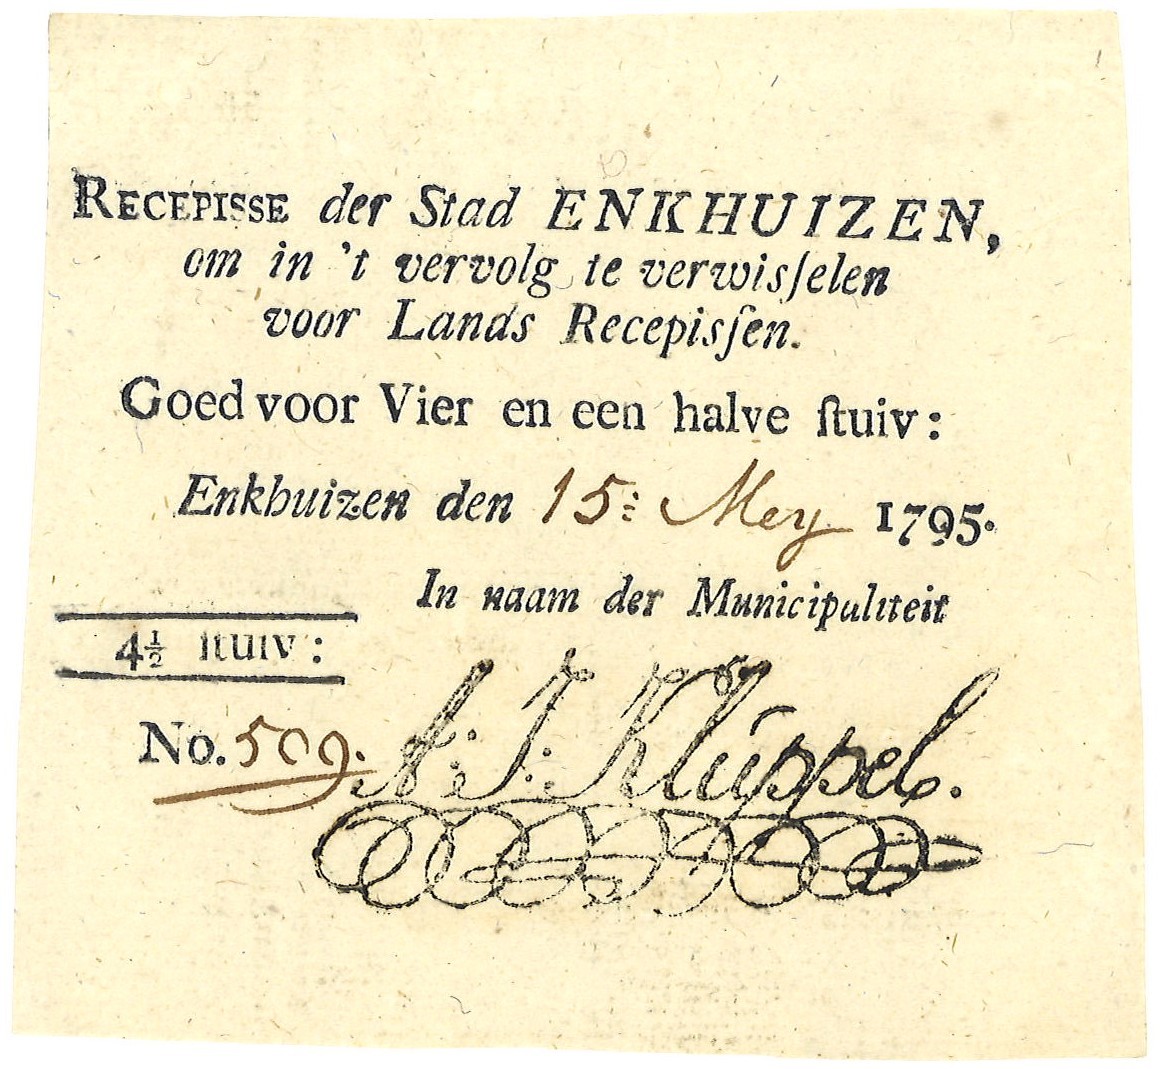 RECEPISSE der Stad ENKHUIZEN,
om in 't vervolg te verwisſelen
voor Lands Recepisſen.
Goed voor Vier en een halve ſtuiv:
Enkhuizen den 15: Mey 1795.
In naam der Municipaliteit
4½ ſtuiv:
No. 509.
A: J: Kluppel.